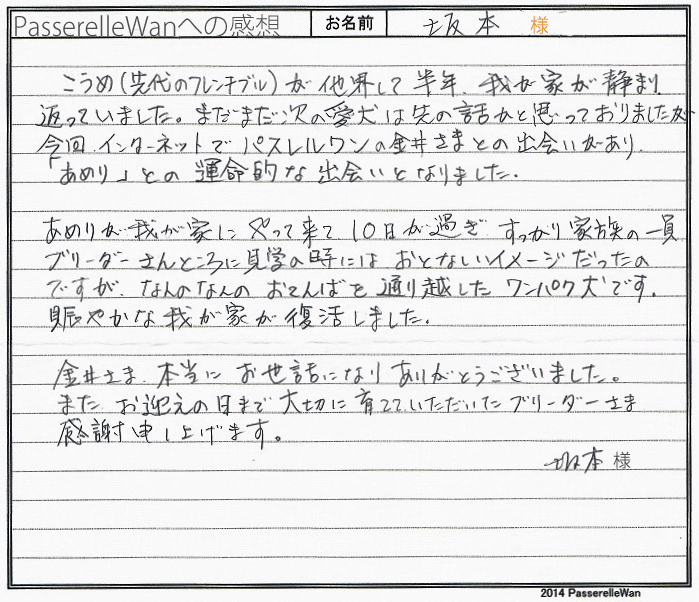 PasserelleWanへの感想 お名前 坂本 様
こうめ(先代のフレンチブル)が他界して半年、我が家が静まり
返っていました。まだまだ次の愛犬は先の話かと思っておりましたが
今回、インターネットでパスレルワンの金井さまとの出会いがあり、
「あめり」との運命的な出会いとなりました。
あめりが我が家にやって来て10日が過ぎ すっかり家族の一員
ブリーダーさんところに見学の時には おとないいイメージだったの
ですが、なんのなんの おてんばを通り越した ワンパク犬です。
賑やかな我が家が復活しました。
金井さま、本当に お世話になり ありがとうございました。
また、お迎えの日まで 大切に育てていただいたブリーダーさま
感謝申し上げます。
坂本 様
2014 PasserelleWan